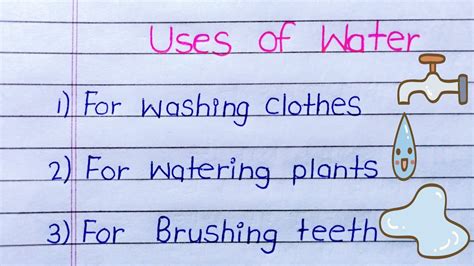 Uses of Water
1) For washing clothes
2) For watering plants
3) For Brushing teeth